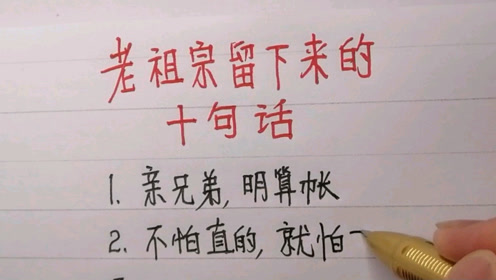 老祖宗留下来的
十句话
1. 亲兄弟,明算帐
2. 不怕直的,就怕